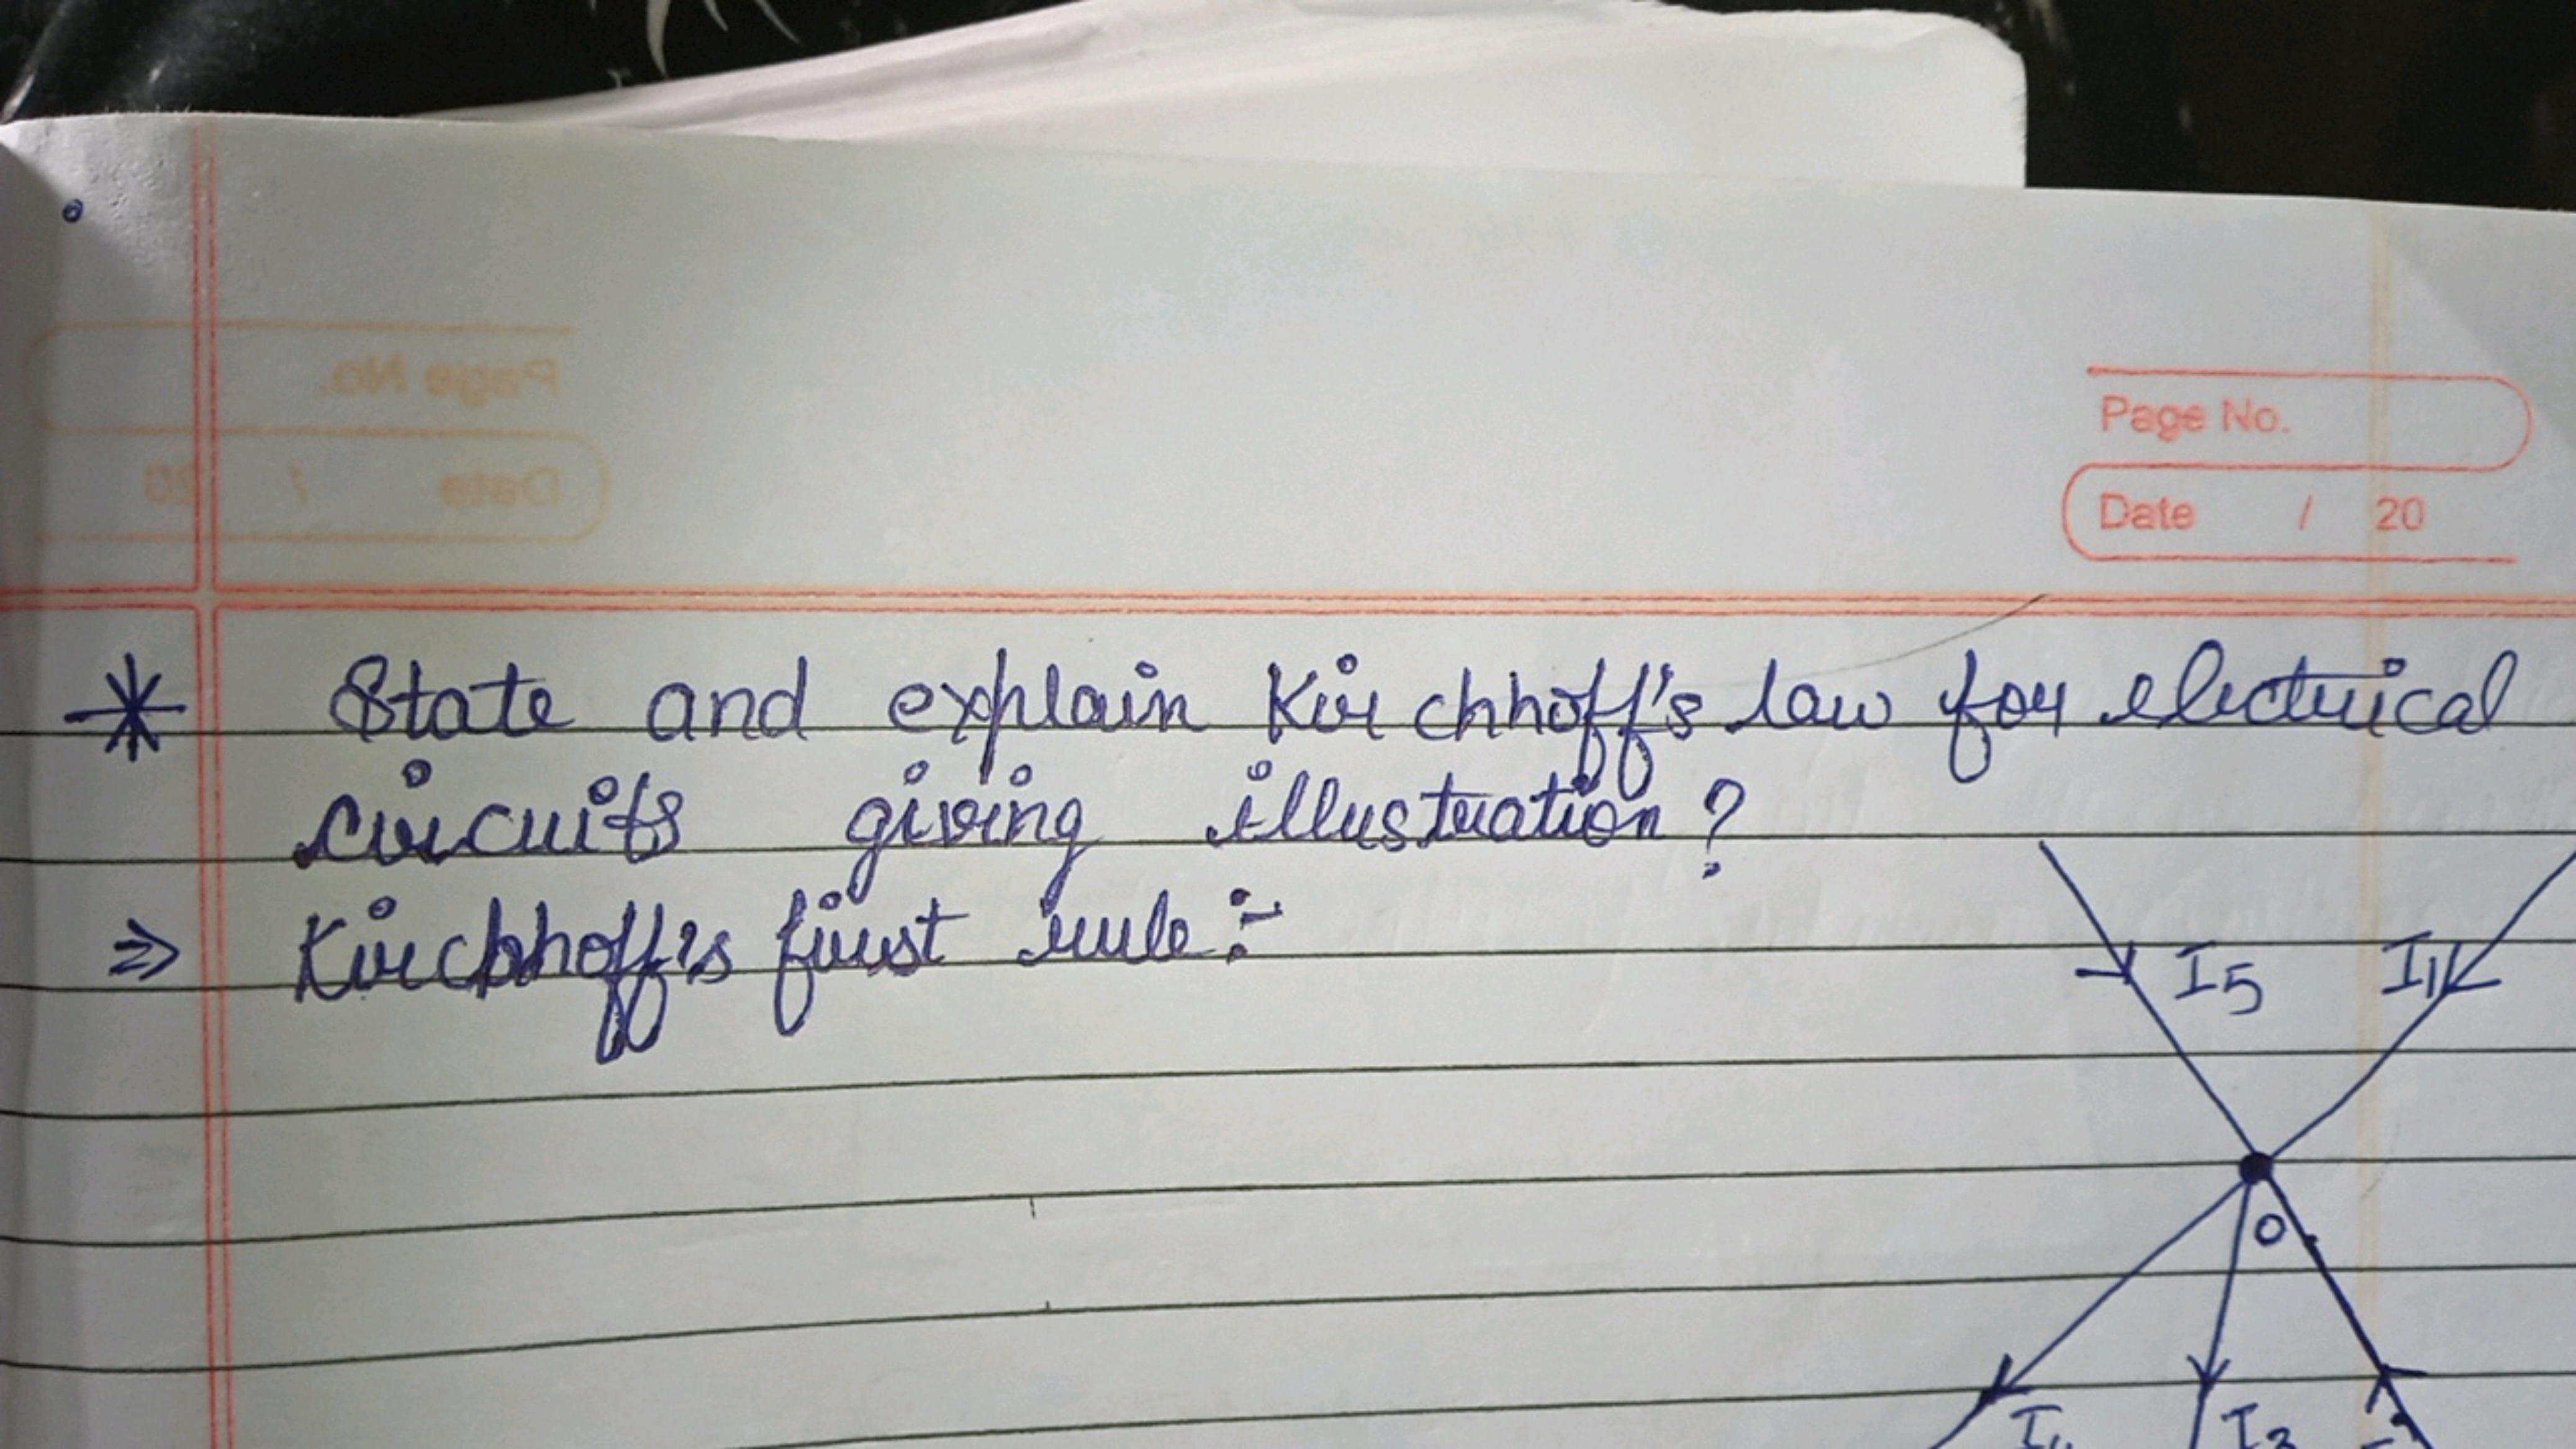 Page No.
Date / 20
* State and explain Kirchhoff's law for electrical
circuits giving illustration?
⇒ Kirchhoff's first rule :-
I5 I1
O
I4 I3